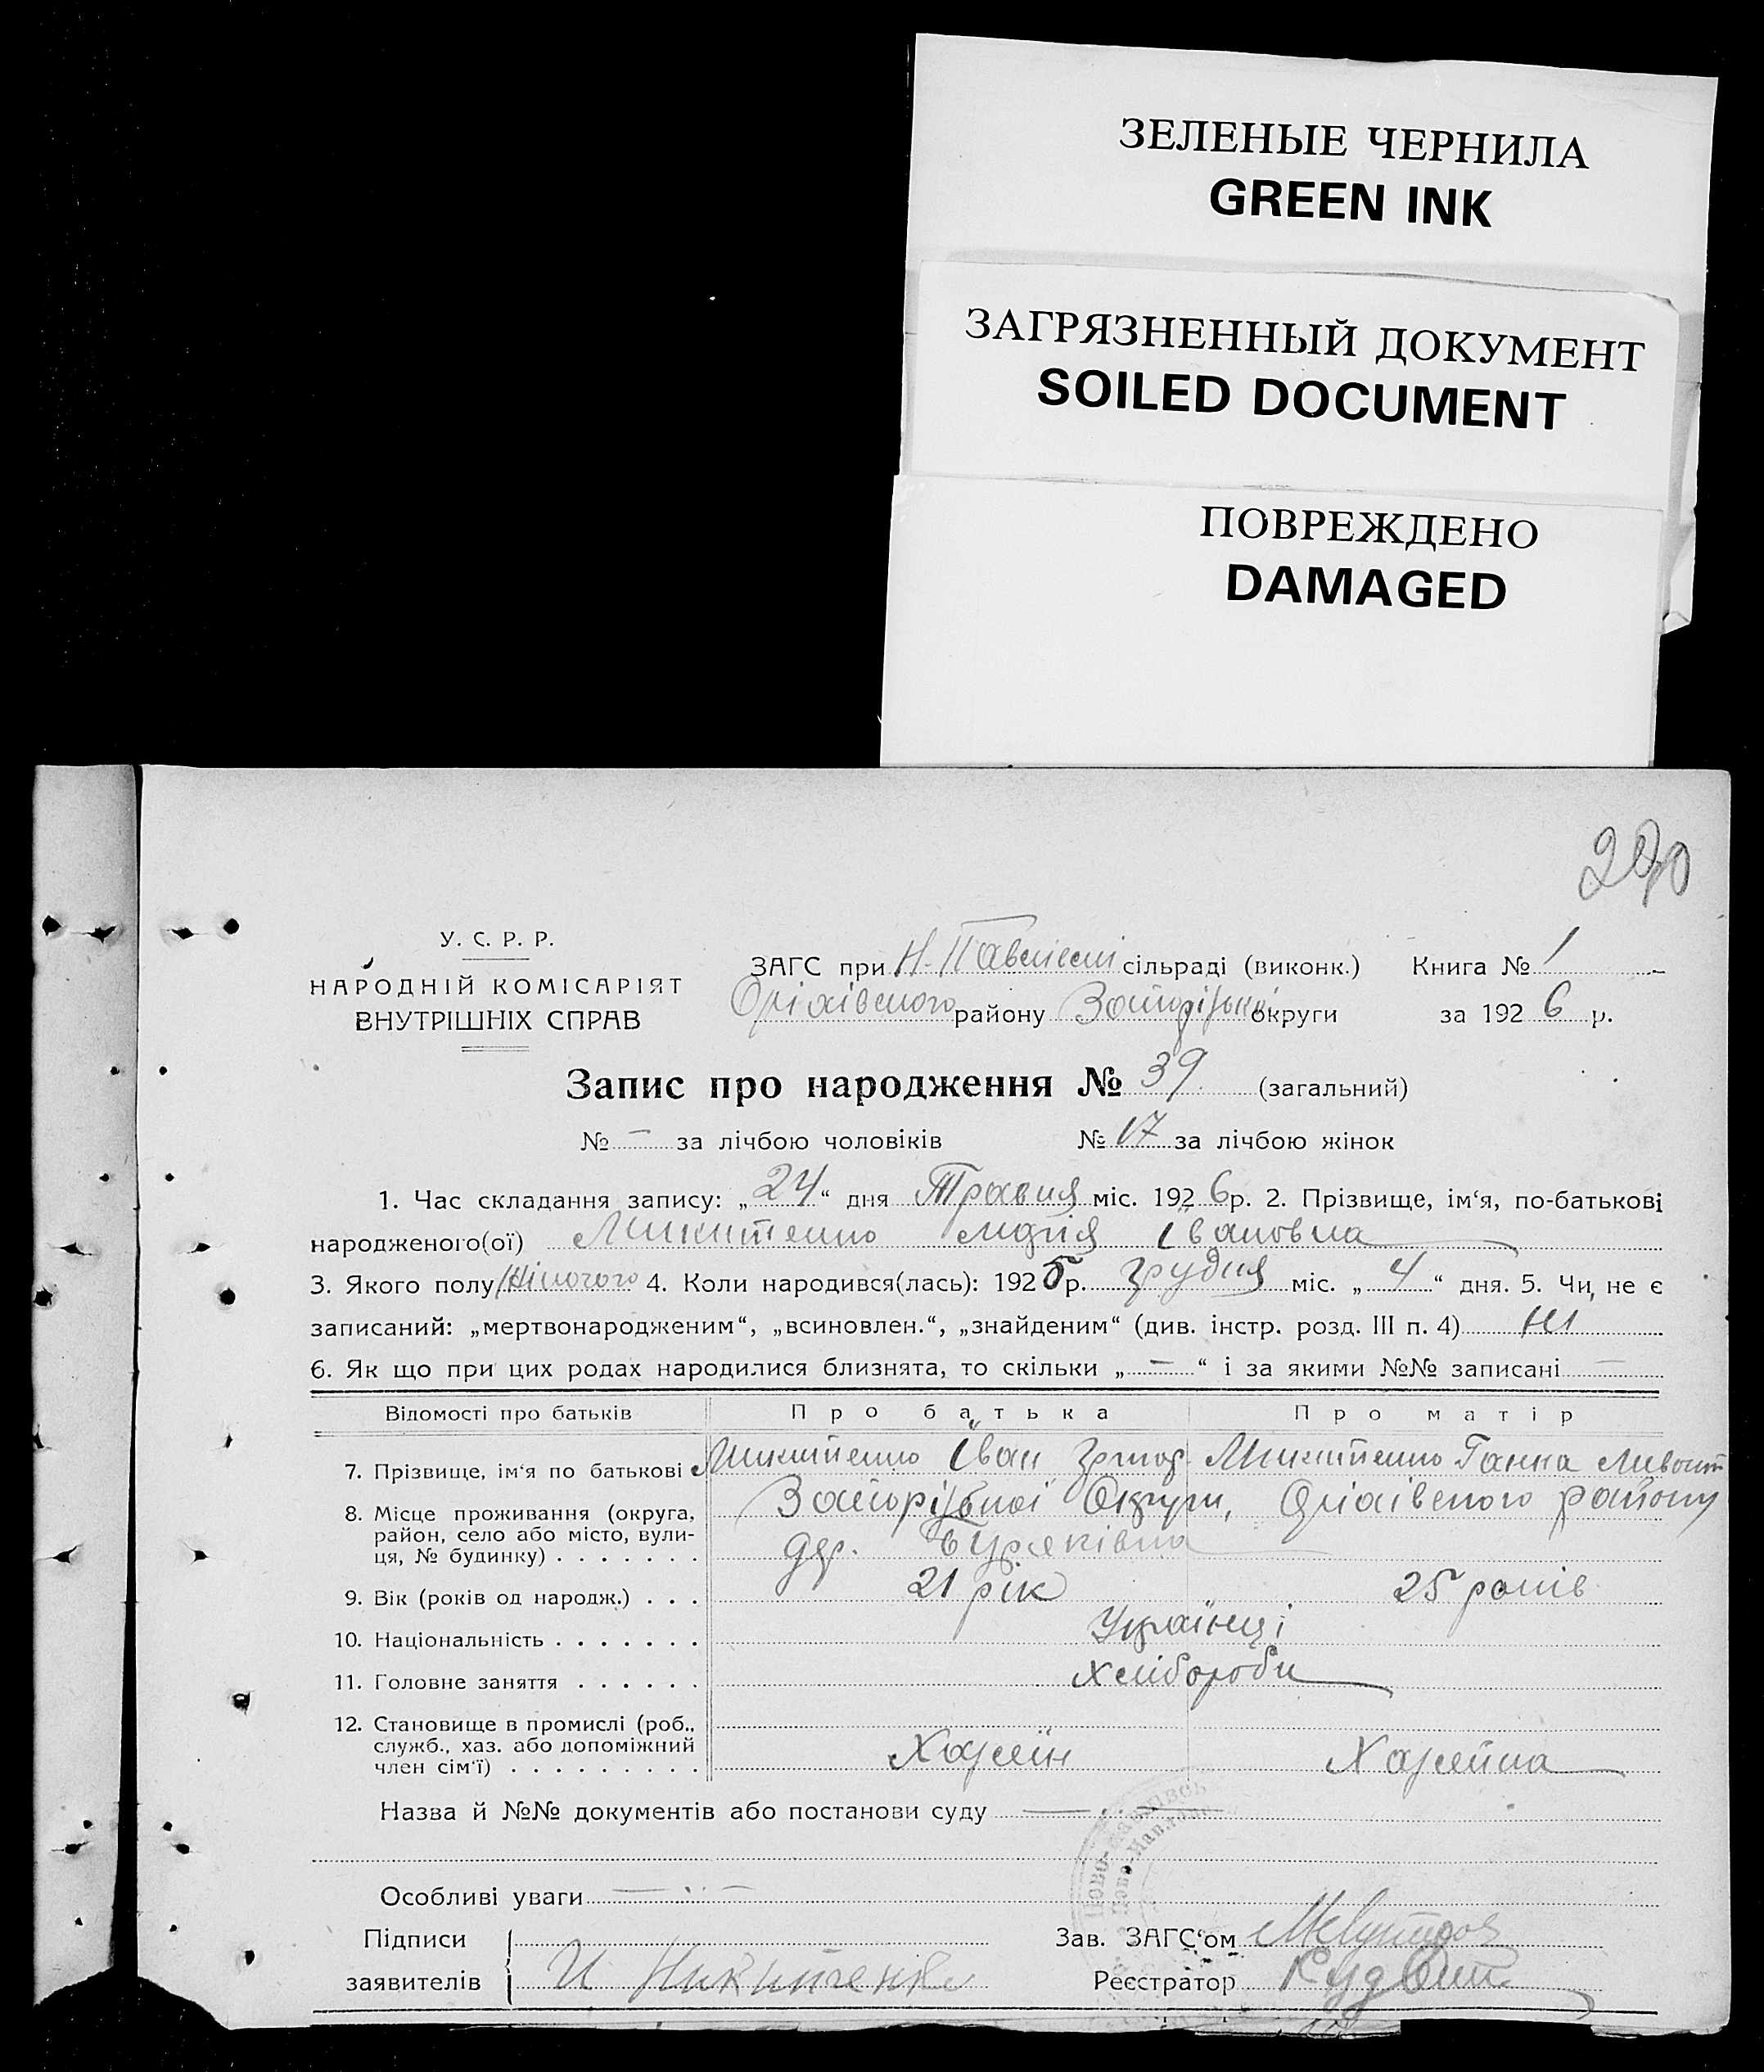 ЗЕЛЕНЫЕ ЧЕРНИЛА
GREEN INK
ЗАГРЯЗНЕННЫЙ ДОКУМЕНТ
SOILED DOCUMENT
ПОВРЕЖДЕНО
DAMAGED
У. С. Р. Р.
НАРОДНІЙ КОМІСАРІЯТ
ВНУТРІШНІХ СПРАВ
ЗАГС при Н-Павлівсь сільраді (виконк.) Книга № 1
Оріхівського району Запорізької округи за 1926 р.
Запис про народження № 39 (загальний)
№ — за лічбою чоловіків № 17 за лічбою жінок
1. Час складання запису: „24“ дня Травня міс. 1926 р. 2. Прізвище, ім‘я, по-батькові
народженого(ої) Микитенко Марія Івановна
3. Якого полу Жіночого 4. Коли народився(лась): 1925 р. Грудня міс. „4“ дня. 5. Чи не є
записаний: „мертвонародженим“, „всиновлен.“, „знайденим“ (див. інстр. розд. III п. 4) Ні
6. Як що при цих родах народилися близнята, то скільки „—“ і за якими №№ записані —
Відомості про батьків Про батька Про матір
7. Прізвище, ім‘я по батькові Микитенко Іван Микитенко Ганна
8. Місце проживання (округа, район, село або місто, вулиця, № будинку) Запорізької Округи, Оріхівського району
дер. Буряківка
9. Вік (років од народж.) 21 рік 25 років
10. Національність Українці
11. Головне заняття Хлібороби
12. Становище в промислі (роб., служб., хаз. або допоміжний член сім‘ї) Хазяїн Хазяйка
Назва й №№ документів або постанови суду —
Особливі уваги —
Підписи
заявителів И Никитенко
Зав. ЗАГС‘ом
Реєстратор